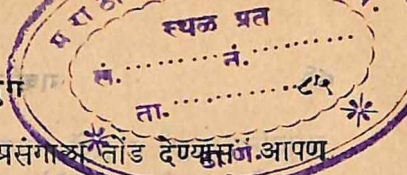 मरा
स्थळ प्रत
सं. .......... नं. ..........
ता. .......... ८५
प्रसंगाला तोंड देण्यास आपण